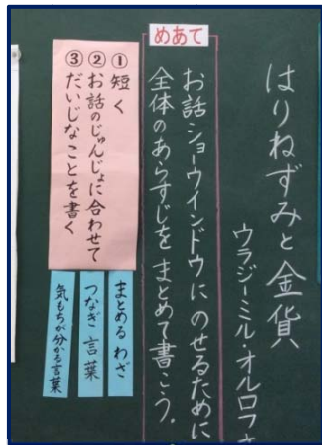 はりねずみと金貨
ウラジーミル・オルロフ
めあて
お話ショーウインドウにのせるために
全体のあらすじをまとめて書こう。
①短く
②お話のじゅんじょに合わせて
③だいじなことを書く
まとめるわざ
つなぎ言葉
気もちが分かる言葉